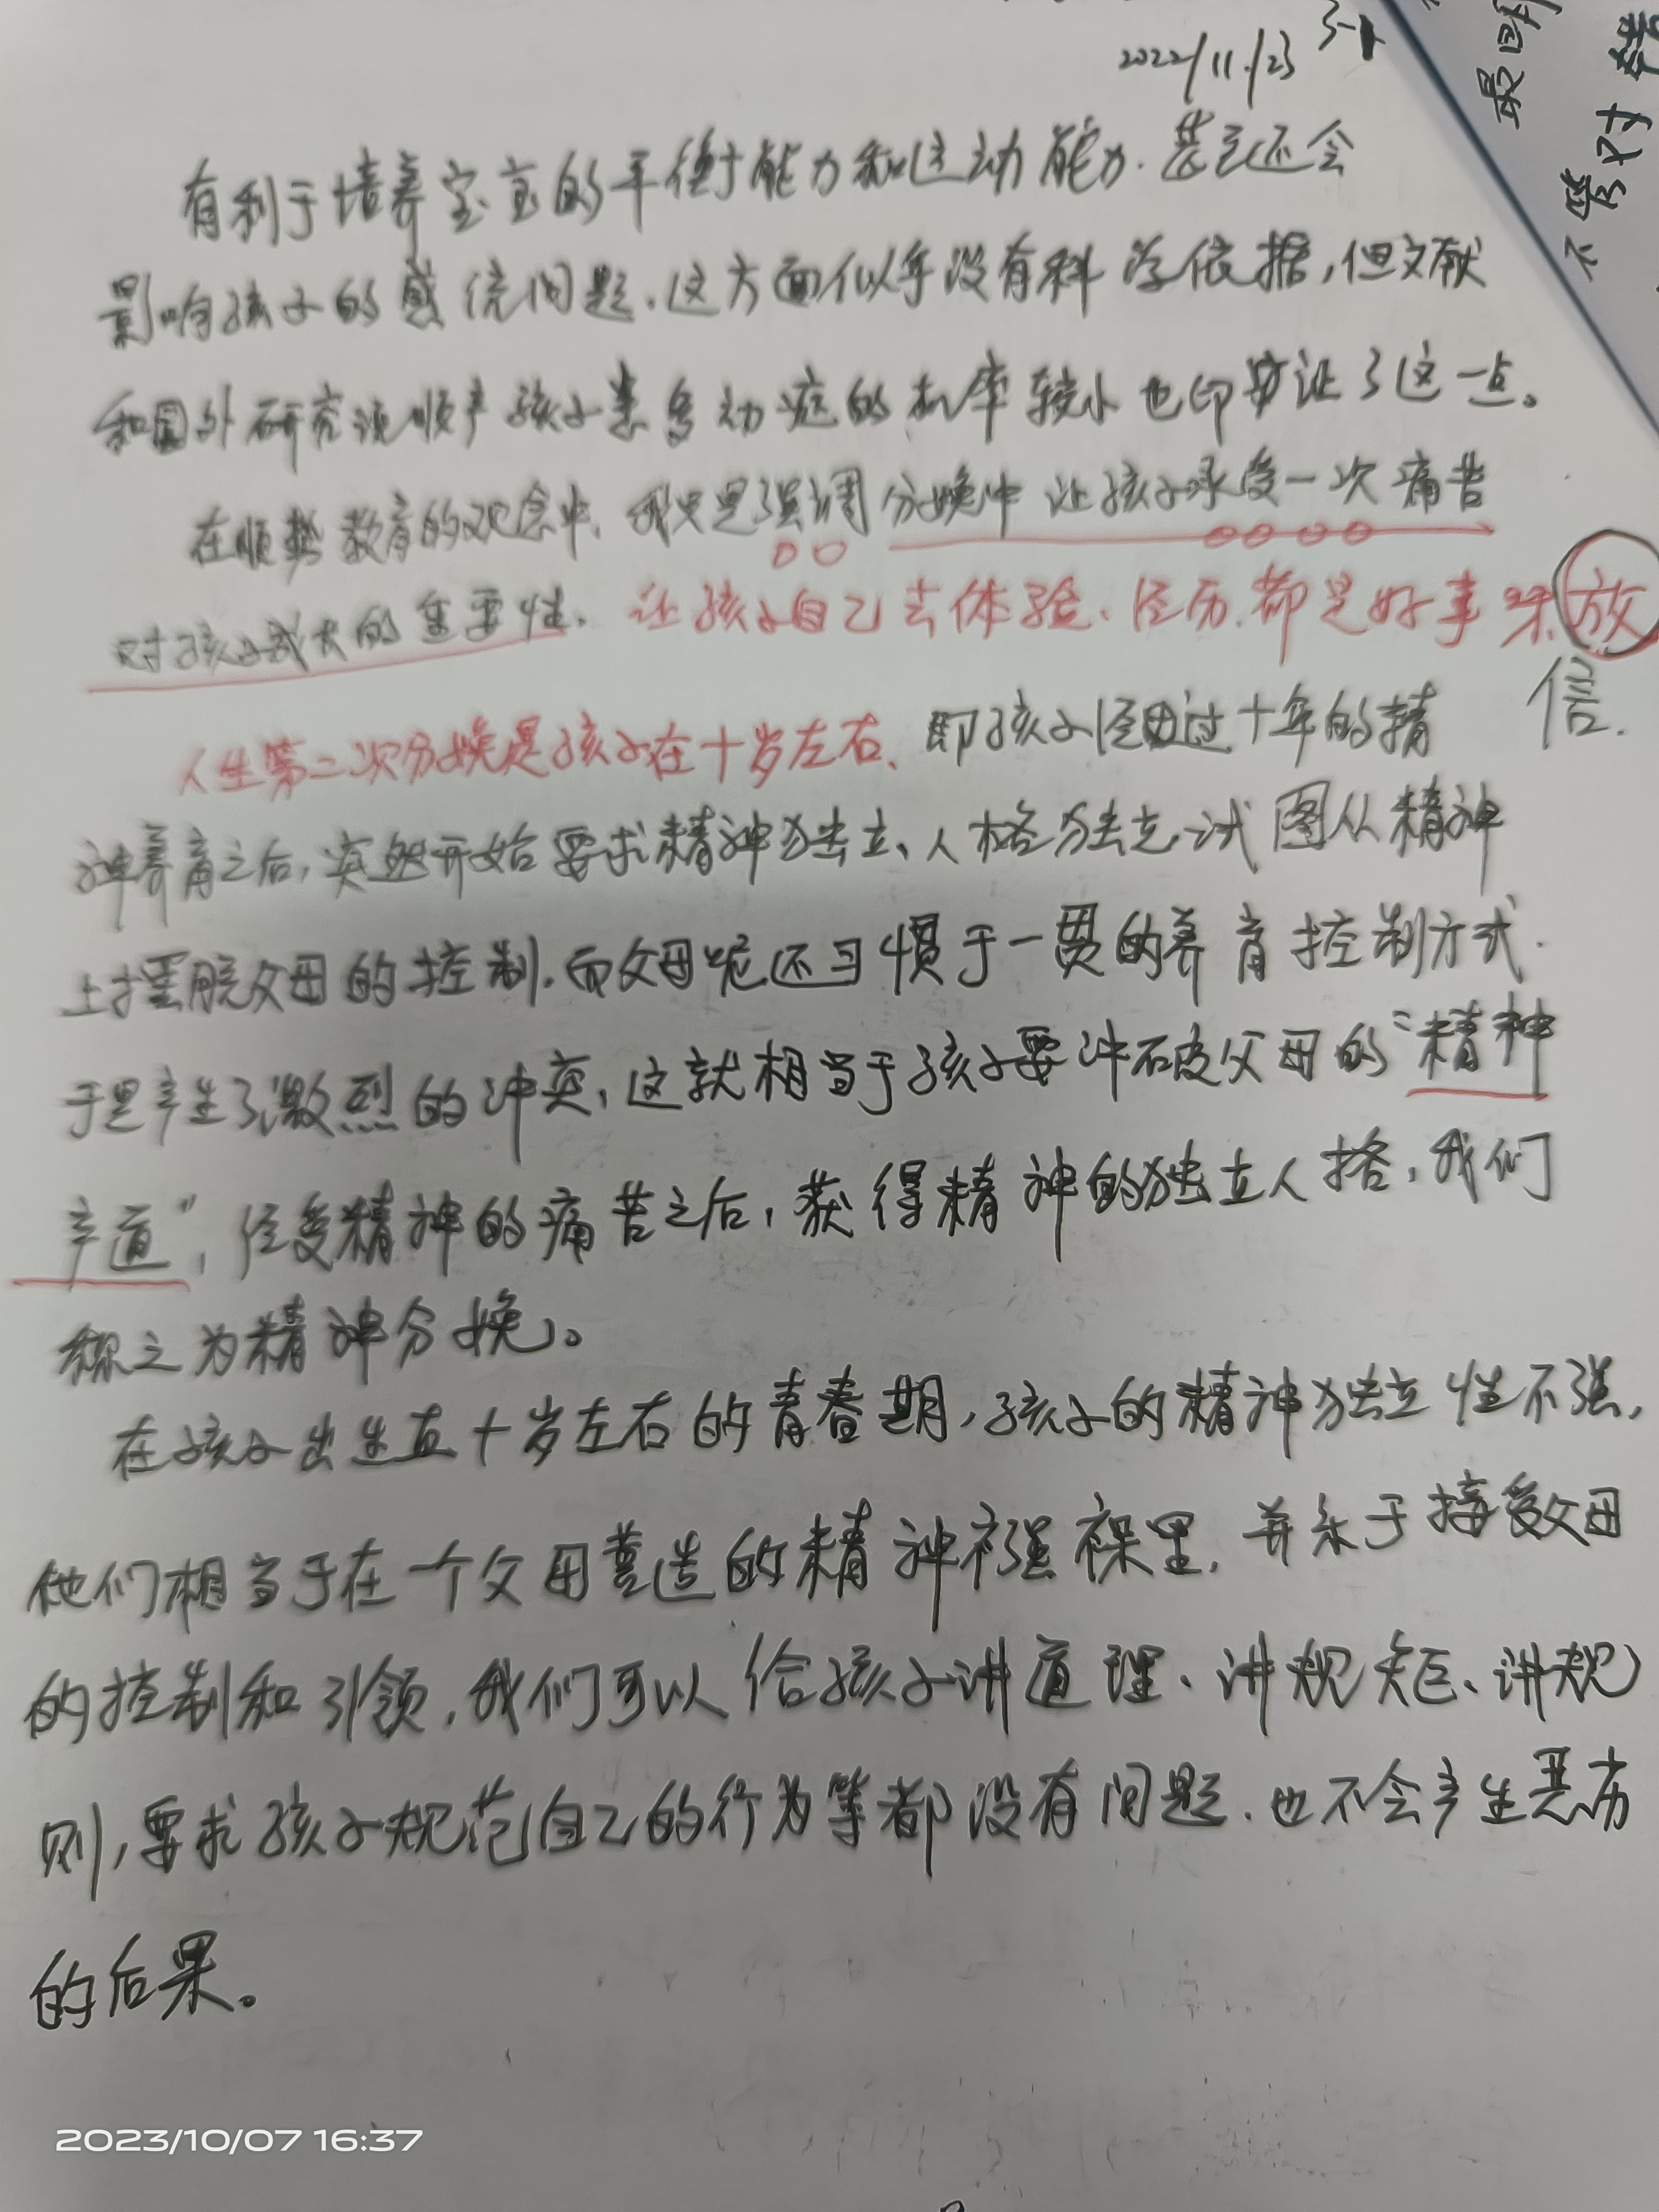 2022/11/23
最
不管对错
有利于培养宝宝的平衡能力和运动能力.甚至还会
影响孩子的感统问题.这方面似乎没有科学依据,但文献
和国外研究说顺产孩子患多动症的机率较小也印证了这一点。
在顺势教育的观念中,我只是强调分娩中让孩子承受一次痛苦
对孩子成长的重要性.让孩子自己去体验、经历.都是好事 放
信.
人生第二次分娩是孩子在十岁左右、即孩子经由过十年的精
神养育之后,突然开始要求精神独立、人格独立,试图从精神
上摆脱父母的控制.而父母呢还习惯于一贯的养育控制方式.
于是产生了激烈的冲突,这就相当于孩子要冲破父母的“精神
产道”,经受精神的痛苦之后,获得精神的独立人格,我们
称之为精神分娩。
在孩子出生直十岁左右的青春期,孩子的精神独立性不强,
他们相当于在一个父母营造的精神襁褓里,并乐于接受父母
的控制和引领,我们可以给孩子讲道理、讲规矩、讲规
则,要求孩子规范自己的行为等都没有问题.也不会产生恶劣
的后果。
2023/10/07 16:37